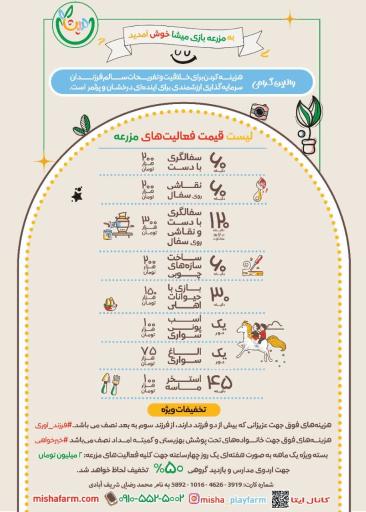 به مزرعه بازی میشا خوش آمدید
والدین گرامی
هزینه کردن برای خلاقیت و تفریحات سالم فرزندان
سرمایه گذاری ارزشمندی برای آینده‌ای درخشان و پرثمر است.
لیست قیمت فعالیت‌های مزرعه
۶۰ دقیقه سفالگری با دست ۲۰۰ هزار تومان
۶۰ دقیقه نقاشی روی سفال ۲۰۰ هزار تومان
۱۲۰ دقیقه سفالگری با دست و نقاشی روی سفال ۳۰۰ هزار تومان
۶۰ دقیقه ساخت سازه‌های چوبی ۲۰۰ هزار تومان
۳۰ دقیقه بازی با حیوانات اهلی ۱۵۰ هزار تومان
یک دور اسب پونی سواری ۱۰۰ هزار تومان
یک دور الاغ سواری ۷۵ هزار تومان
۴۵ دقیقه استخر ماسه ۱۰۰ هزار تومان
تخفیفات ویژه
هزینه‌های فوق جهت عزیزانی که بیش از دو فرزند دارند، از فرزند سوم به بعد نصف می باشد. #فرزند_آوری
هزینه‌های فوق جهت خانواده‌های تحت پوشش بهزیستی و کمیته امداد نصف می‌باشد #خیرخواهی
بسته ویژه یک ماهه به صورت هفته‌ای یک روز چهارساعته جهت کلیه فعالیت‌های مزرعه: ۲ میلیون تومان
جهت اردوی مدارس و بازدید گروهی ۵۰% تخفیف لحاظ خواهد شد.
شماره کارت: 3919 - 4626 - 1016 - 5892 به نام محمد رضایی شریف آبادی
کانال ایتا misha playfarm ۰۹۱۰-۵۵۲-۵۰۰۲ mishafarm.com